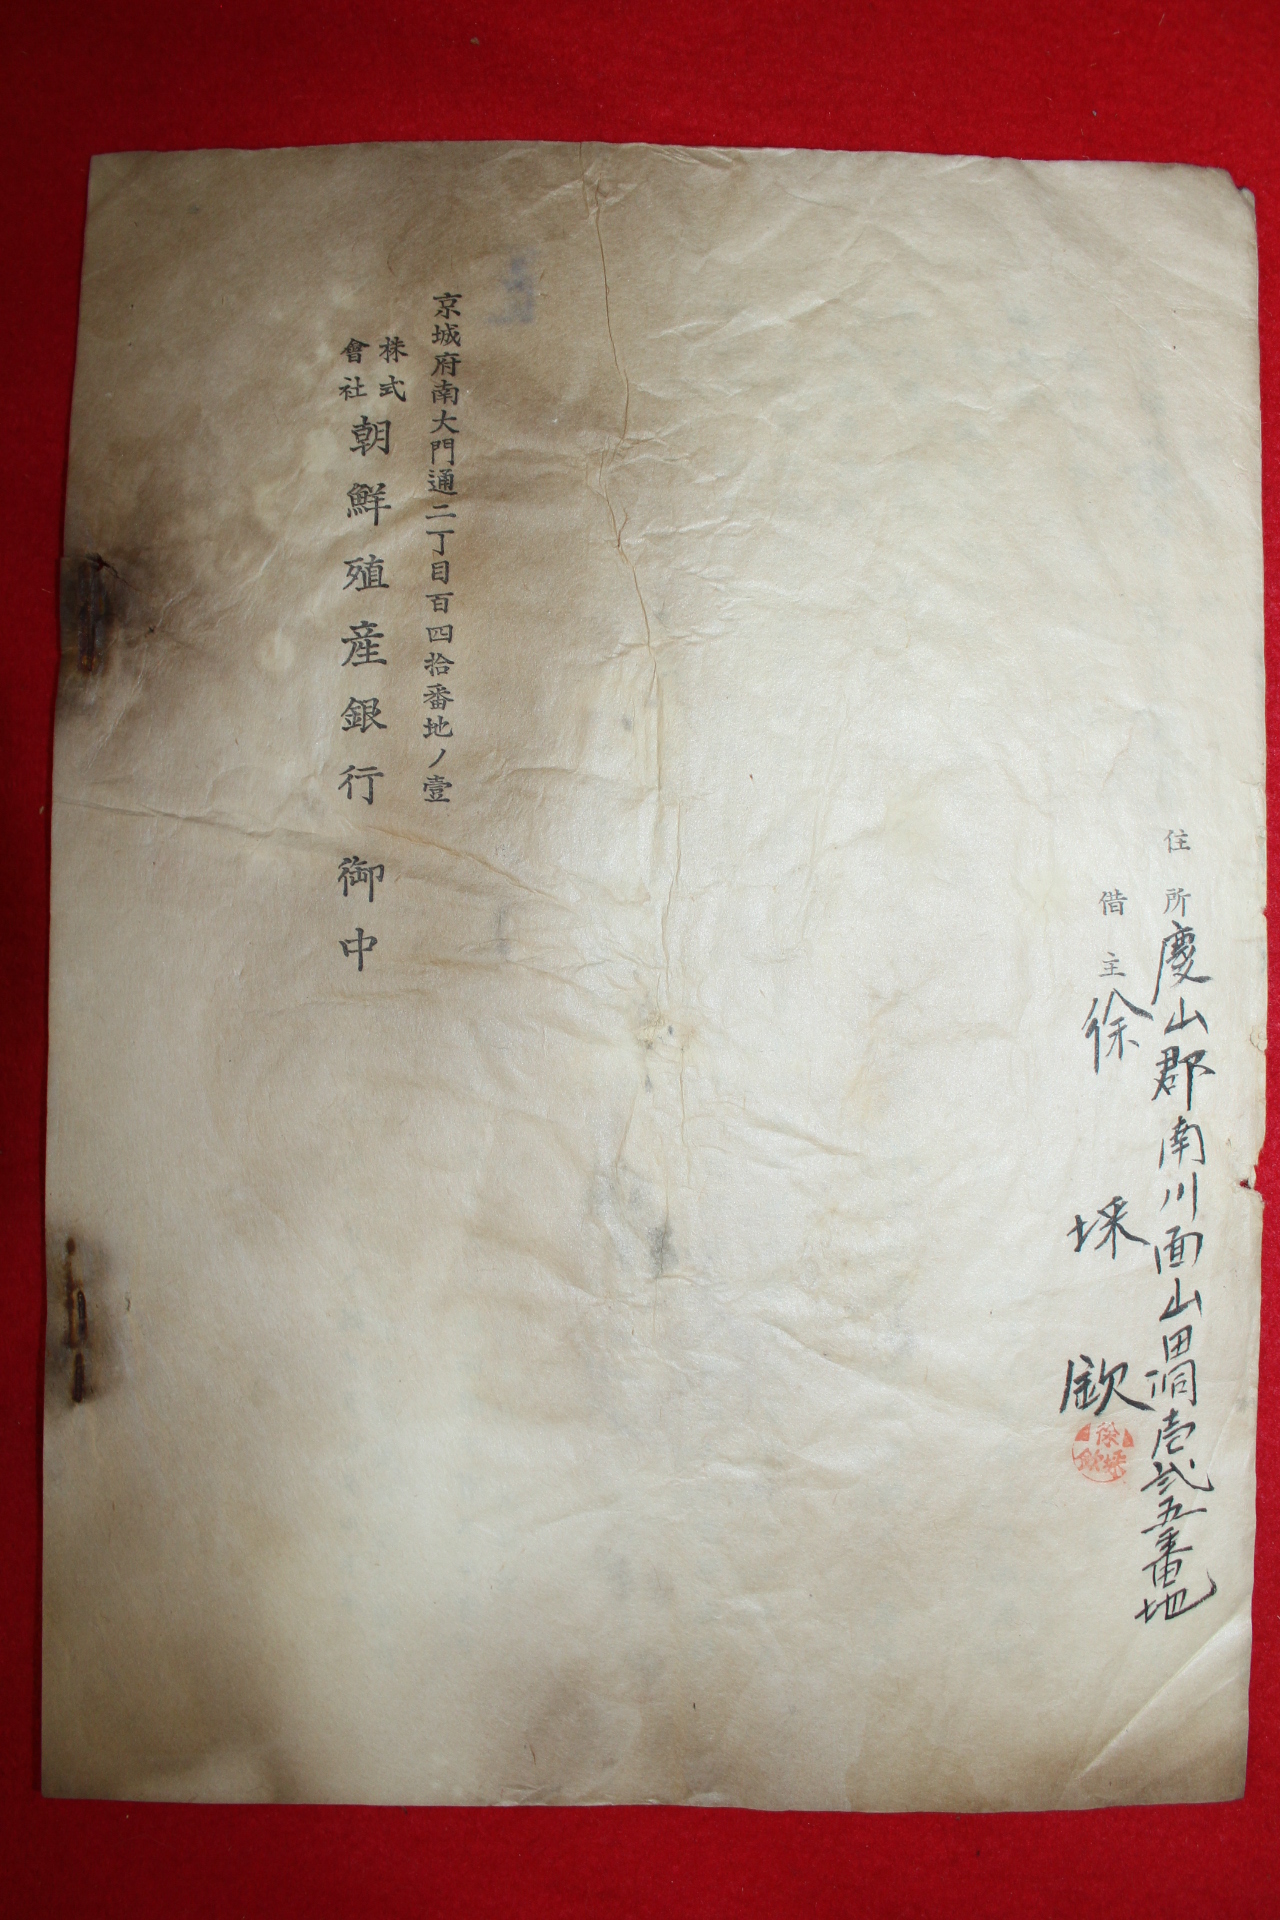 住所 慶山郡南川面山田洞壱弐五番地
借主 徐 埰 欽
徐埰欽
京城府南大門通二丁目百四拾番地ノ壹
株式會社朝鮮殖産銀行 御中